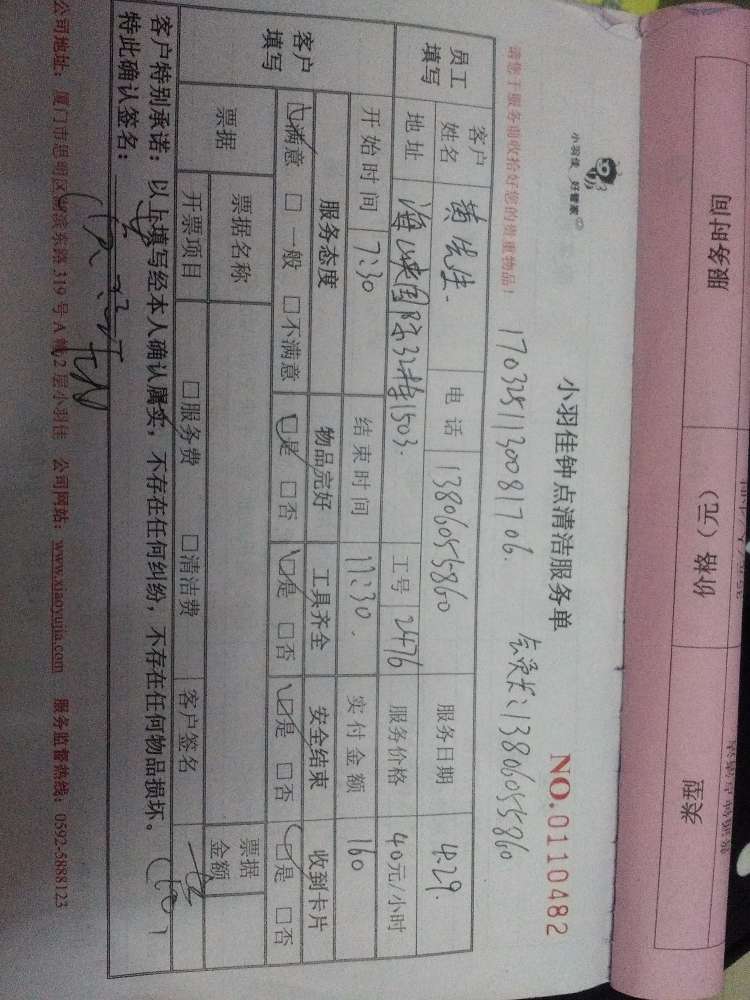 服务时间
价格（元）
类型
小羽佳 好管家
小羽佳钟点清洁服务单
NO.0110482
1703251130081706.
会员卡:13806055860
请您于服务前收拾好您的贵重物品！
员工填写
客户姓名 黄先生. 电话 13806055860 服务日期 4.29.
地址 国际32梯1503. 工号 2476 服务价格 40元/小时
开始时间 7:30 结束时间 11:30. 实付金额 160
客户填写
服务态度 物品完好 工具齐全 安全结束 收到卡片
☑满意 □一般 □不满意 ☑是 □否 ☑是 □否 ☑是 □否 ☑是 □否
票据 票据名称 票据金额
开票项目 □服务费 □清洁费 客户签名
客户特别承诺：以上填写经本人确认属实，不存在任何纠纷，不存在任何物品损坏。
特此确认签名：
公司地址：厦门市思明区湖滨东路319号A幢2层小羽佳 公司网站：www.xiaoyujia.com 服务监督热线：0592-5888123